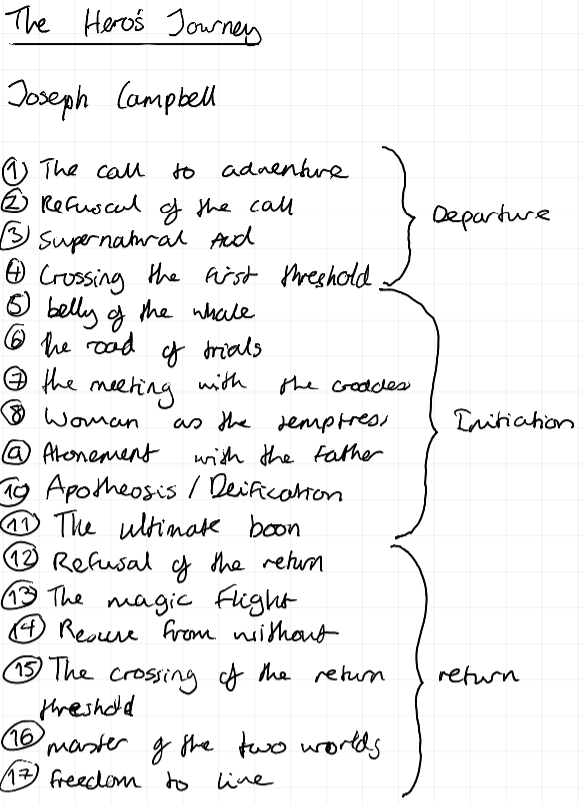 The Hero's Journey
Joseph Campbell
① The call to adventure
② Refusal of the call
③ Supernatural Aid
④ Crossing the first threshold
Departure
⑤ belly of the whale
⑥ the road of trials
⑦ the meeting with the Goddes
⑧ Woman as the temptress
⑨ Atonement with the Father
⑩ Apotheosis / Deification
⑪ The ultimate boon
Initiation
⑫ Refusal of the return
⑬ The magic Flight
⑭ Rescue from without
⑮ The crossing of the return
threshold
⑯ master of the two worlds
⑰ freedom to live
return